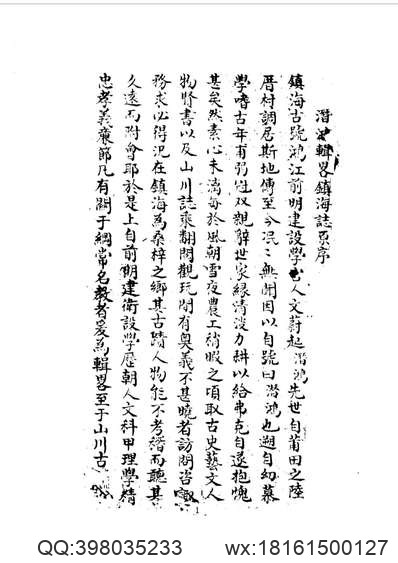 潛鴻輯畧鎮海誌原序
鎮海古號鴻江前明建設學宮人文蔚起潛鴻先世自莆田之陸
厝村調居斯地傳至今泯泯無聞因以自號曰潛鴻也溯自幼慕
學嗜古年甫弱冠双親辭世家緣清淡力耕以給弗克自遂抱愧
甚矣然素心未滿每於風朝雪夜農工稍暇之頃取古史藝文人
物賢書以及山川誌乘翻閱觀玩間有奥義不甚曉者訪問咨諏
務求必得況在鎮海為桑梓之鄉其古蹟人物能不考稽而聽其
久遠而附會耶於是上自前明建衛設學歷朝人文科甲理學精
忠孝義亷節凡有關于綱常名教者爰為輯畧至于山川古
1
QQ:398035233 wx:18161500127